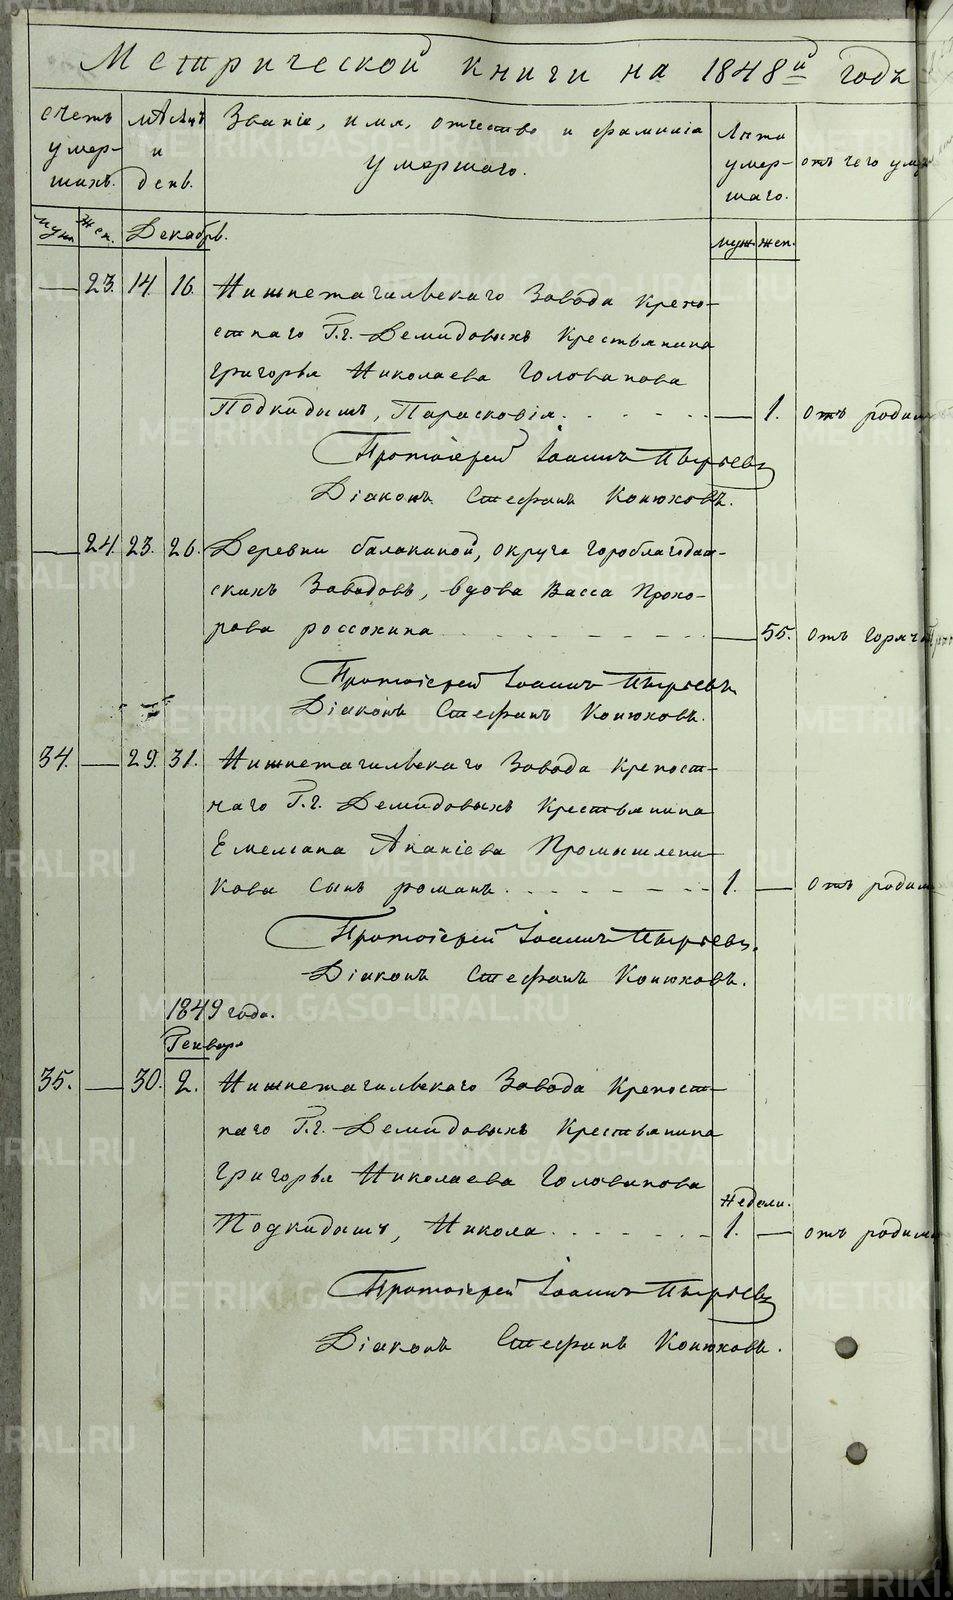 Метрической книги на 1848й годъ
счетъ умер- шихъ.
мѣсяцъ и день.
Званіе, имя, отчество и фамилія
умершаго.
Лѣта умер- шаго.
отъ чего
муж. жен. Декабрь. муж. жен.
— 23. 14. 16. Нижнетагильскаго Завода крепо-
стнаго Г.г. Демидовыхъ Крестьянина
Григорья Николаева Голованова
Подкидышъ, Парасковія. — 1. отъ родим
Протоіерей Іоаннъ Пырьевъ
Діаконъ Стефанъ Конюховъ.
— 24. 23. 26. Деревни балакиной, округа гороблагодат-
скихъ Заводовъ, вдова Васса Прохо-
рова россохина — 55. отъ горяч
Протоіерей Іоаннъ Пырьевъ
Діаконъ Стефанъ Конюховъ.
34. — 29. 31. Нижнетагильскаго Завода Крепост-
наго Г.г. Демидовыхъ Крестьянина
Емельяна Ананіева Промышлени-
кова сынъ романъ. 1. — отъ родим
Протоіерей Іоаннъ Пырьевъ.
Діаконъ Стефанъ Конюховъ.
1849 года.
Генваря
35. — 30. 2. Нижнетагильскаго Завода Крепост-
наго Г.г. Демидовыхъ Крестьянина
Григорья Николаева Голованова
Недели.
Подкидышъ, Никола 1. — отъ родим
Протоіерей Іоаннъ Пырьевъ
Діаконъ Стефанъ Конюховъ.
METRIKI.GASO-URAL.RU